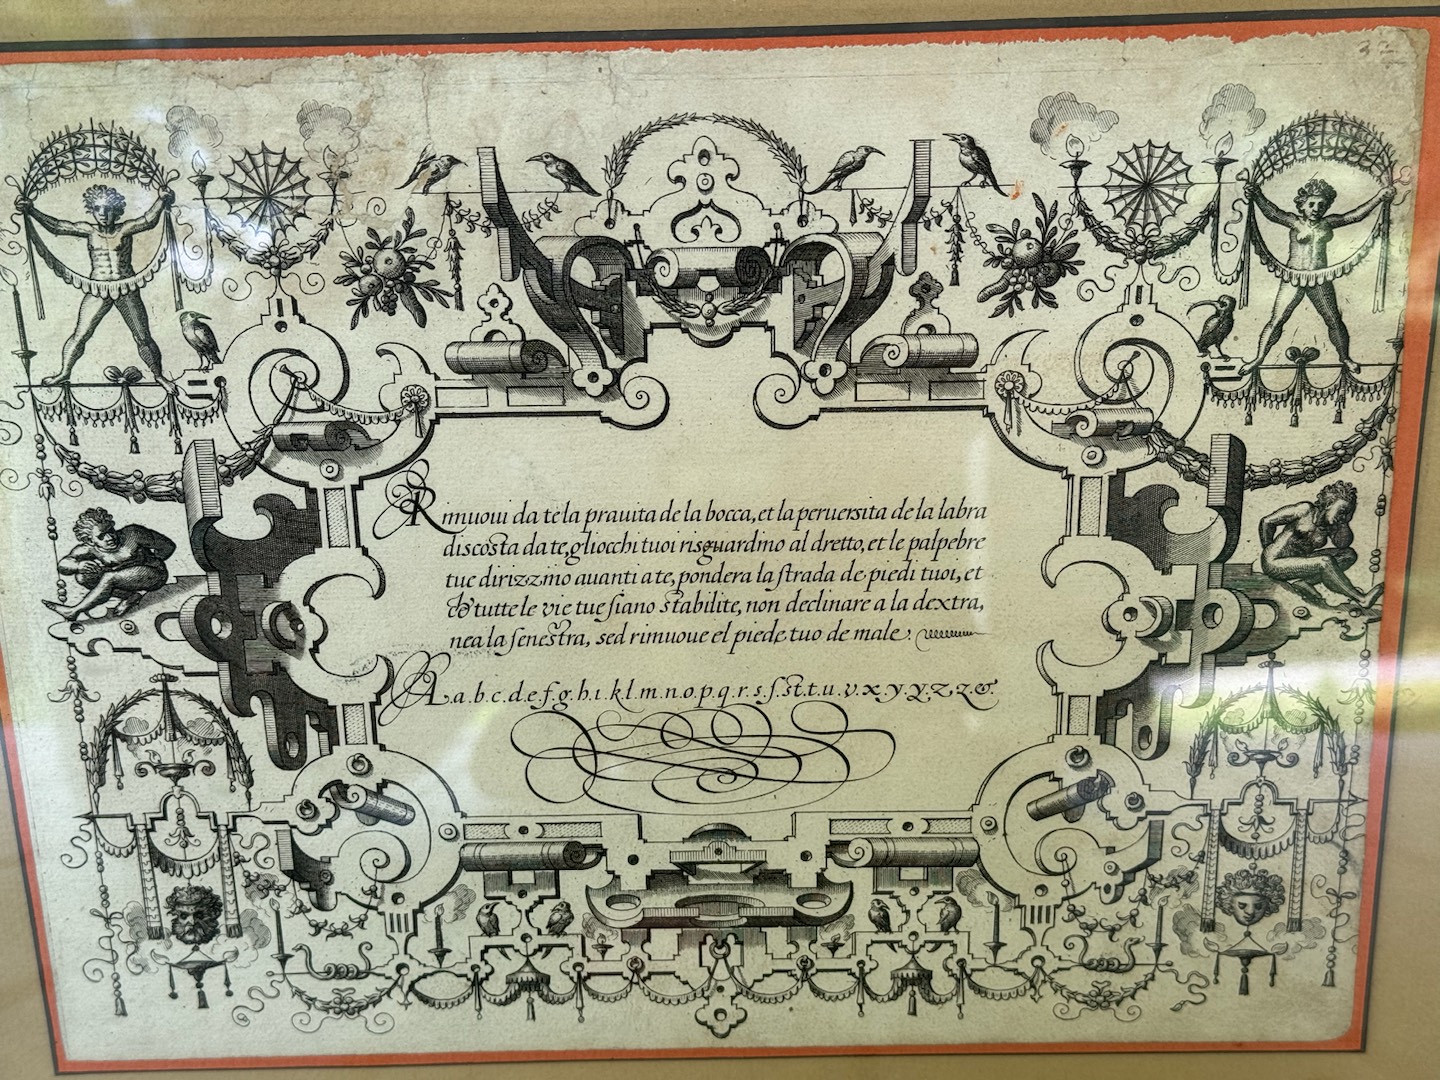 32
Rimuoui da te la prauita de la bocca, et la peruersita de la labra
discosta da te, gli occhi tuoi risguardino al dretto, et le palpebre
tue dirizzino auanti a te, pondera la ſtrada de piedi tuoi, et
& tutte le vie tue ſiano ſtabilite, non declinare a la dextra,
ne a la ſeneſtra, sed rimuoue el piede tuo de male.
A a.b.c.d.e.f.g.h.i.k.l.m.n.o.p.q.r.s.ſ.ſt.t.u.v.x.y.y.z.z.&.